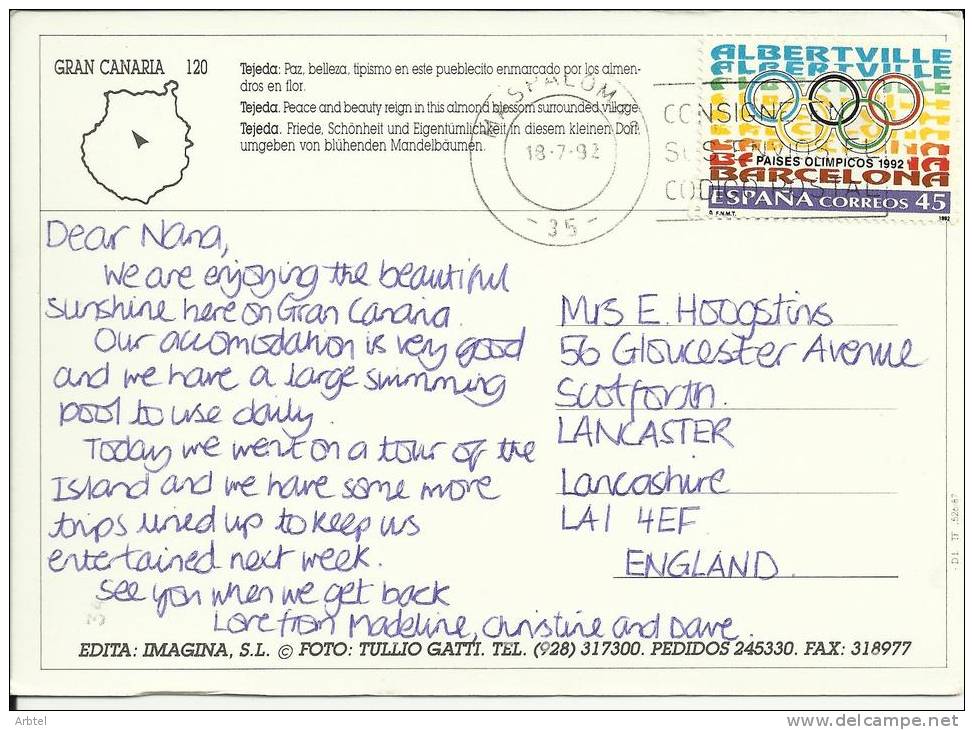 GRAN CANARIA 120
Tejeda: Paz, belleza, tipismo en este pueblecito enmarcado por los almen-
dros en flor.
Tejeda. Peace and beauty reign in this almond blessom surrounded village
Tejeda. Friede, Schönheit und Eigentümlichkeit in diesem kleinen Dorf,
umgeben von blühenden Mandelbäumen.
MASPALOMAS
18-7-92
- 35 -
CONSIGNE EN
SUS ENVIOS EL
CODIGO POSTAL
ALBERTVILLE
ALBERTVILLE
PAISES OLIMPICOS 1992
BARCELONA
ESPAÑA CORREOS 45
F.N.M.T. 1992
Dear Nana,
We are enjoying the beautiful
sunshine here on Gran Canaria.
Our accomodation is very good
and we have a large swimming
pool to use daily.
Today we went on a tour of the
Island and we have some more
trips lined up to keep us
entertained next week.
See you when we get back
Love from Madeline, Christine and Dave.
Mrs E. Hoogstins
56 Gloucester Avenue
Scotforth.
LANCASTER
Lancashire
LA1 4EF
ENGLAND.
EDITA: IMAGINA, S.L. © FOTO: TULLIO GATTI. TEL. (928) 317300. PEDIDOS 245330. FAX: 318977
Arbtel
www.delcampe.net